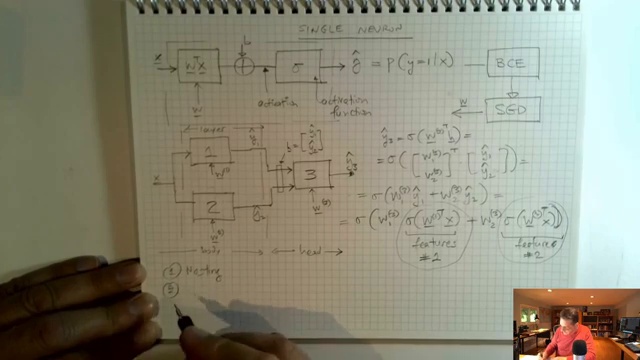 SINGLE NEURON
x wᵀx b σ ŷ = P(y=1|x) BCE
w activation activation function w SGD
layer
x 1 ŷ₁ h = [ŷ₁ ŷ₂] 3 ŷ₃
w⁽¹⁾
2 ŷ₂ w⁽³⁾
w⁽²⁾
head
ŷ₃ = σ(w⁽³⁾ᵀ h) =
= σ([w₁⁽³⁾ w₂⁽³⁾]ᵀ [ŷ₁ ŷ₂]) =
= σ(w₁⁽³⁾ ŷ₁ + w₂⁽³⁾ ŷ₂) =
= σ(w₁⁽³⁾ σ(w⁽¹⁾ᵀ x) + w₂⁽³⁾ σ(w⁽²⁾ᵀ x))
features #2 features #2
① Nesting
②